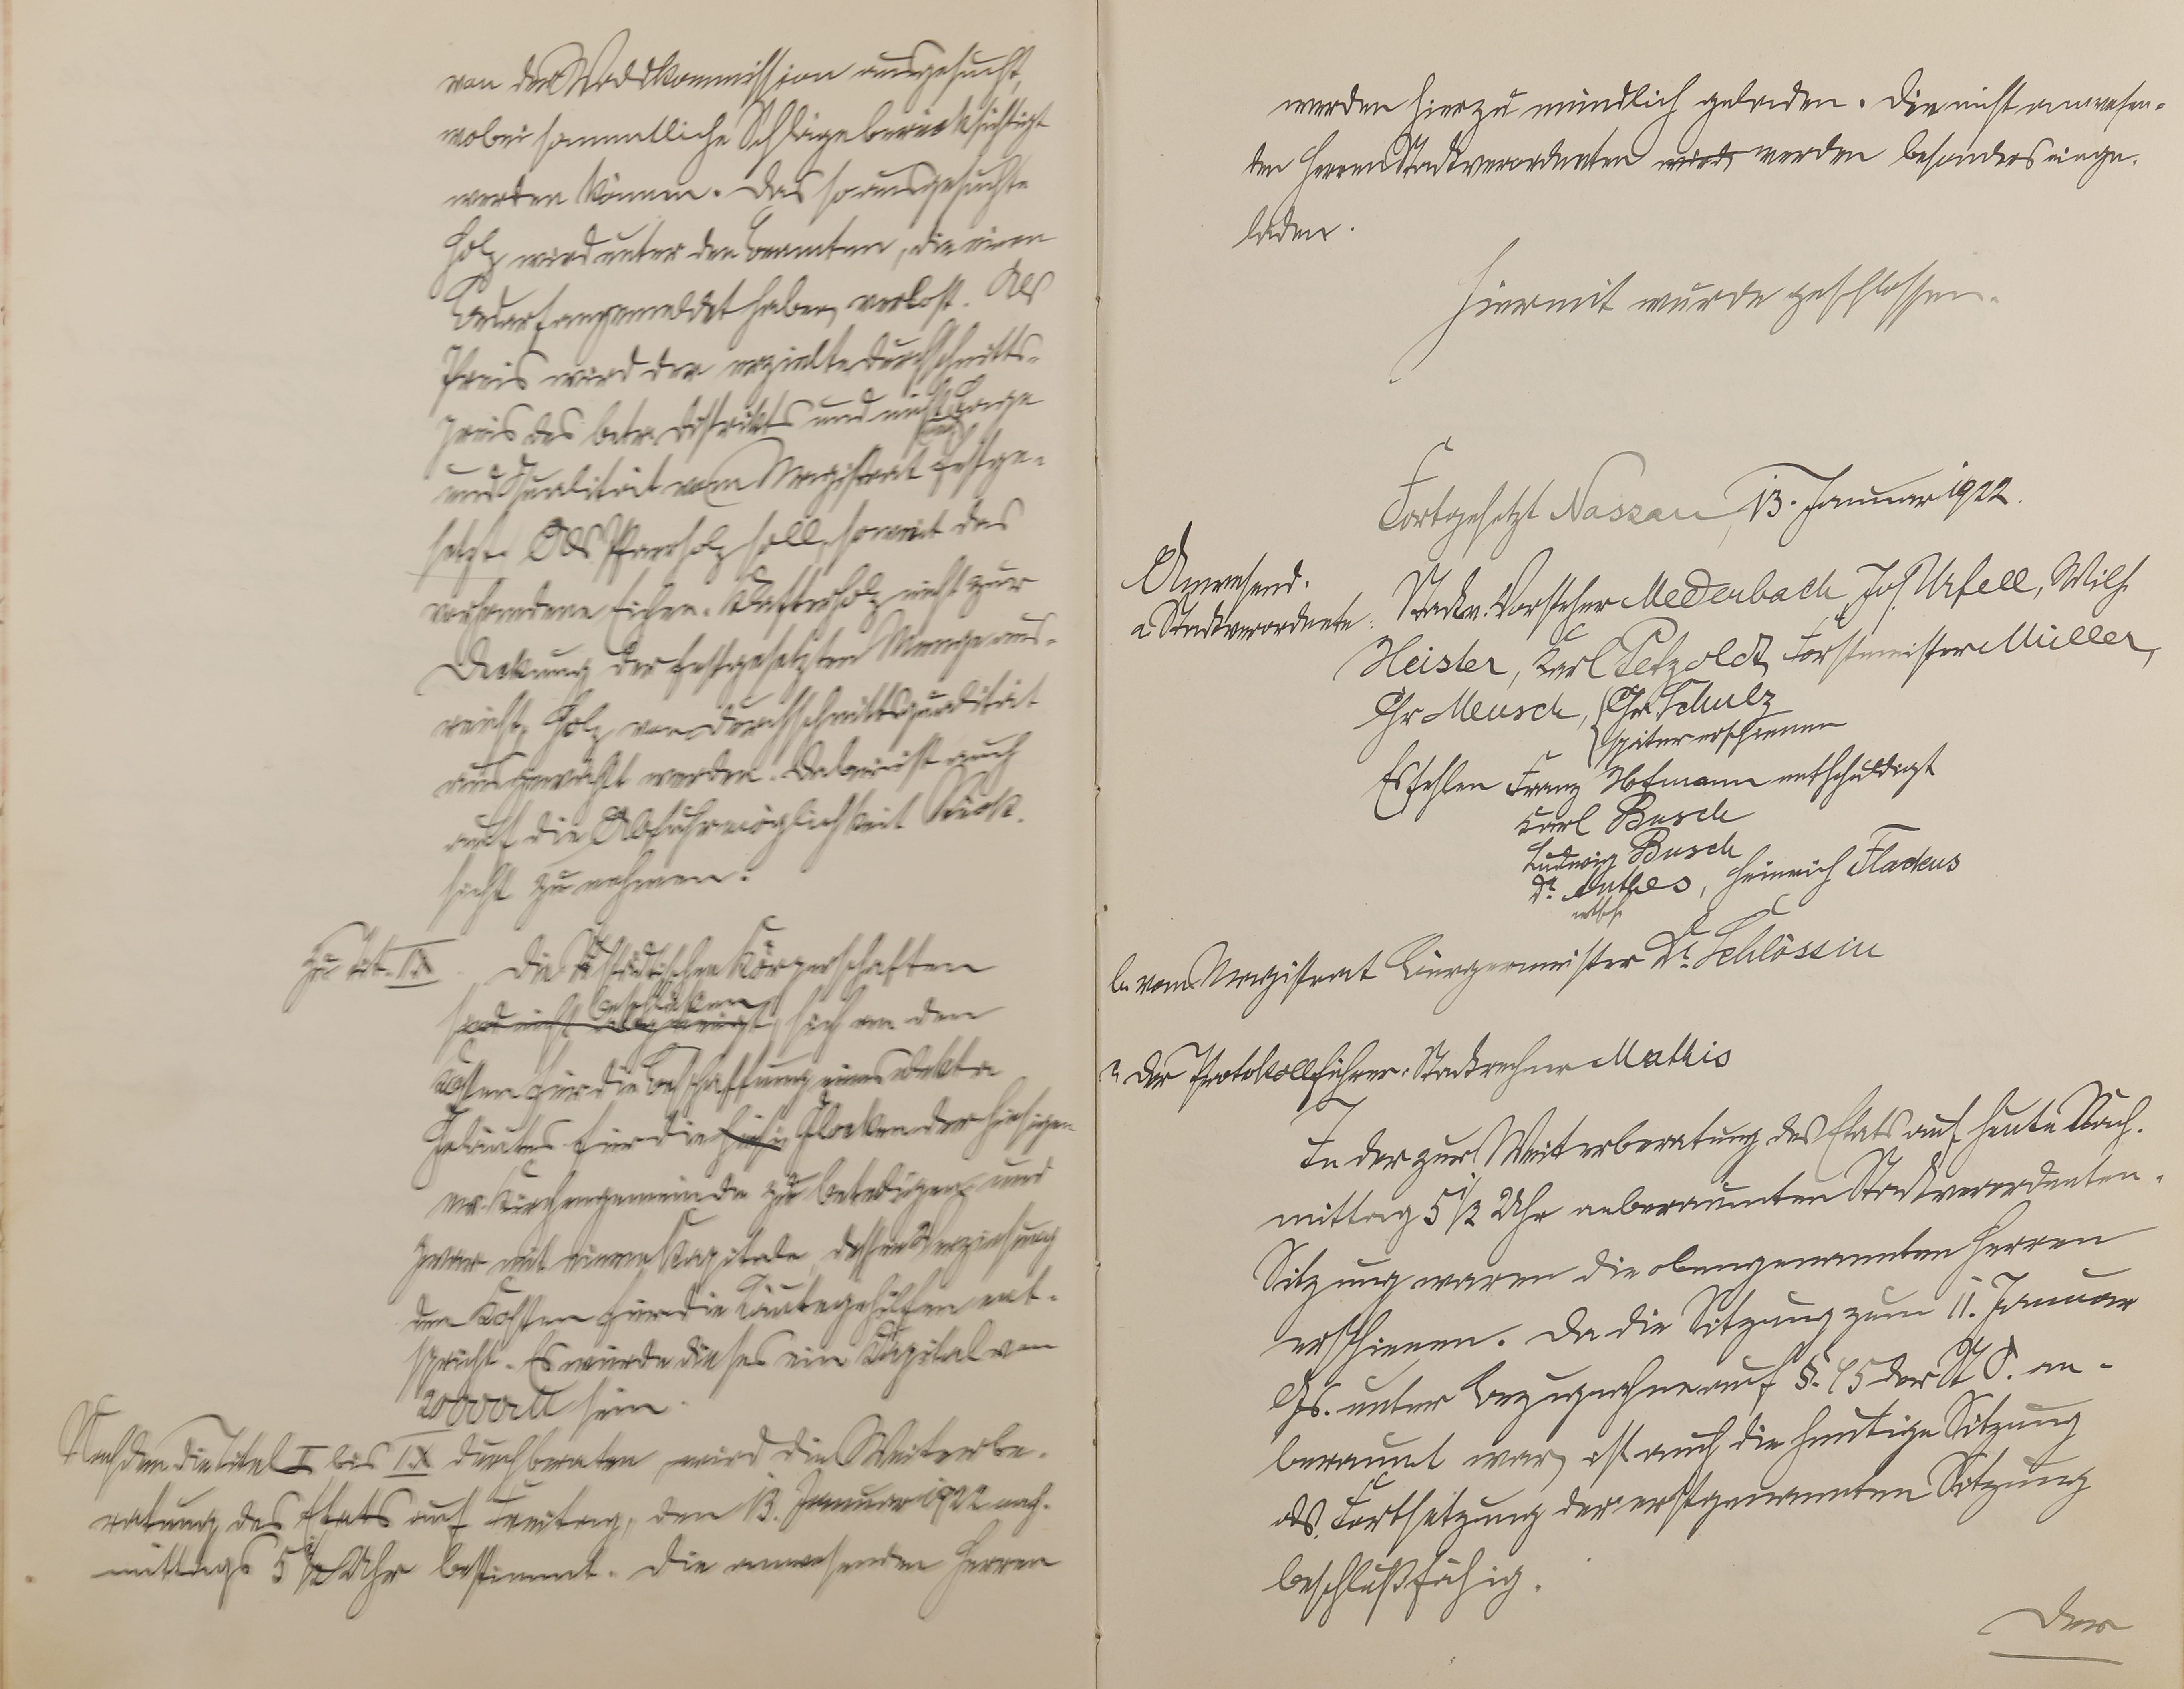 von der Waldkommission ausgesucht,
wobei sammtliche Schläge berücksichtigt
werden können. Das so ausgesuchte
Holz wird unter den Beamten, die einen
Bedarf angemeldet haben, verlost. Als
Preis wird der erzielte Durchschnitts-
preis des betr. Distrikts und nicht Lage
und Qualität vom Magistrat festge-
setzt. Als Pfarrholz soll, soweit das
vorhandene Eichen-Klafterholz nicht zur
Deckung der festgesetzten Menge aus-
reicht, Holz von Durchschnittsqualität
ausgewählt werden. Dabei ist auch
auf die Abfuhrmöglichkeit Rück-
sicht zu nehmen.
Zu Tit. IX. Die städtischen Körperschaften
beschließen
sind nicht abgeneigt, sich an den
Kosten für die Beschaffung eines elektr.
Geläutes für die Glocken der hiesigen
ev. Kirchengemeinde zu beteiligen und
zwar mit einem Kapitale, dessen Verzinsung
den Kosten für die Läutegehilfen ent-
spricht. Es würde dieses ein Kapital von
20000 M sein.
Nachdem die Titel I bis IX durchberaten, wird die Weiterbe-
ratung des Etats auf Freitag, den 13. Januar 1922 nach-
mittags 5 1/2 Uhr bestimmt. Die anwesenden Herren
werden hierzu mündlich geladen. Die nicht anwesen-
den Herren Stadtverordneten wird werden besonders einge-
laden.
Hiermit wurde geschlossen.
Fortgesetzt Nassau, 13. Januar 1922.
Anwesend.
a. Stadtverordnete: Stadtv. Vorsteher Medenbach, Jos. Urfell, Wilh.
Heister, Karl Petzold, Forstmeister Müller,
Chr Meusch, Chr. Schulz
später erschienen
Es fehlen Franz Hofmann entschuldigt
Karl Busch
Ludwig Busch
Dr. Anthes, Heinrich Flackus
entsch.
b. vom Magistrat Bürgermeister Dr. Schlössin
c. der Protokollführer: Stadtrechner Mathis
In der zur Weiterberatung des Etats auf heute Nach-
mittag 5 1/2 Uhr anberaumten Stadtverordneten-
Sitzung waren die obengenannten Herren
erschienen. Da die Sitzung zum 11. Januar
ds. Js. unter Bezugnahme auf §. 45 der St. O. an-
beraumt war, ist auch die heutige Sitzung
als Fortsetzung der erstgenannten Sitzung
beschlußfähig.
Der